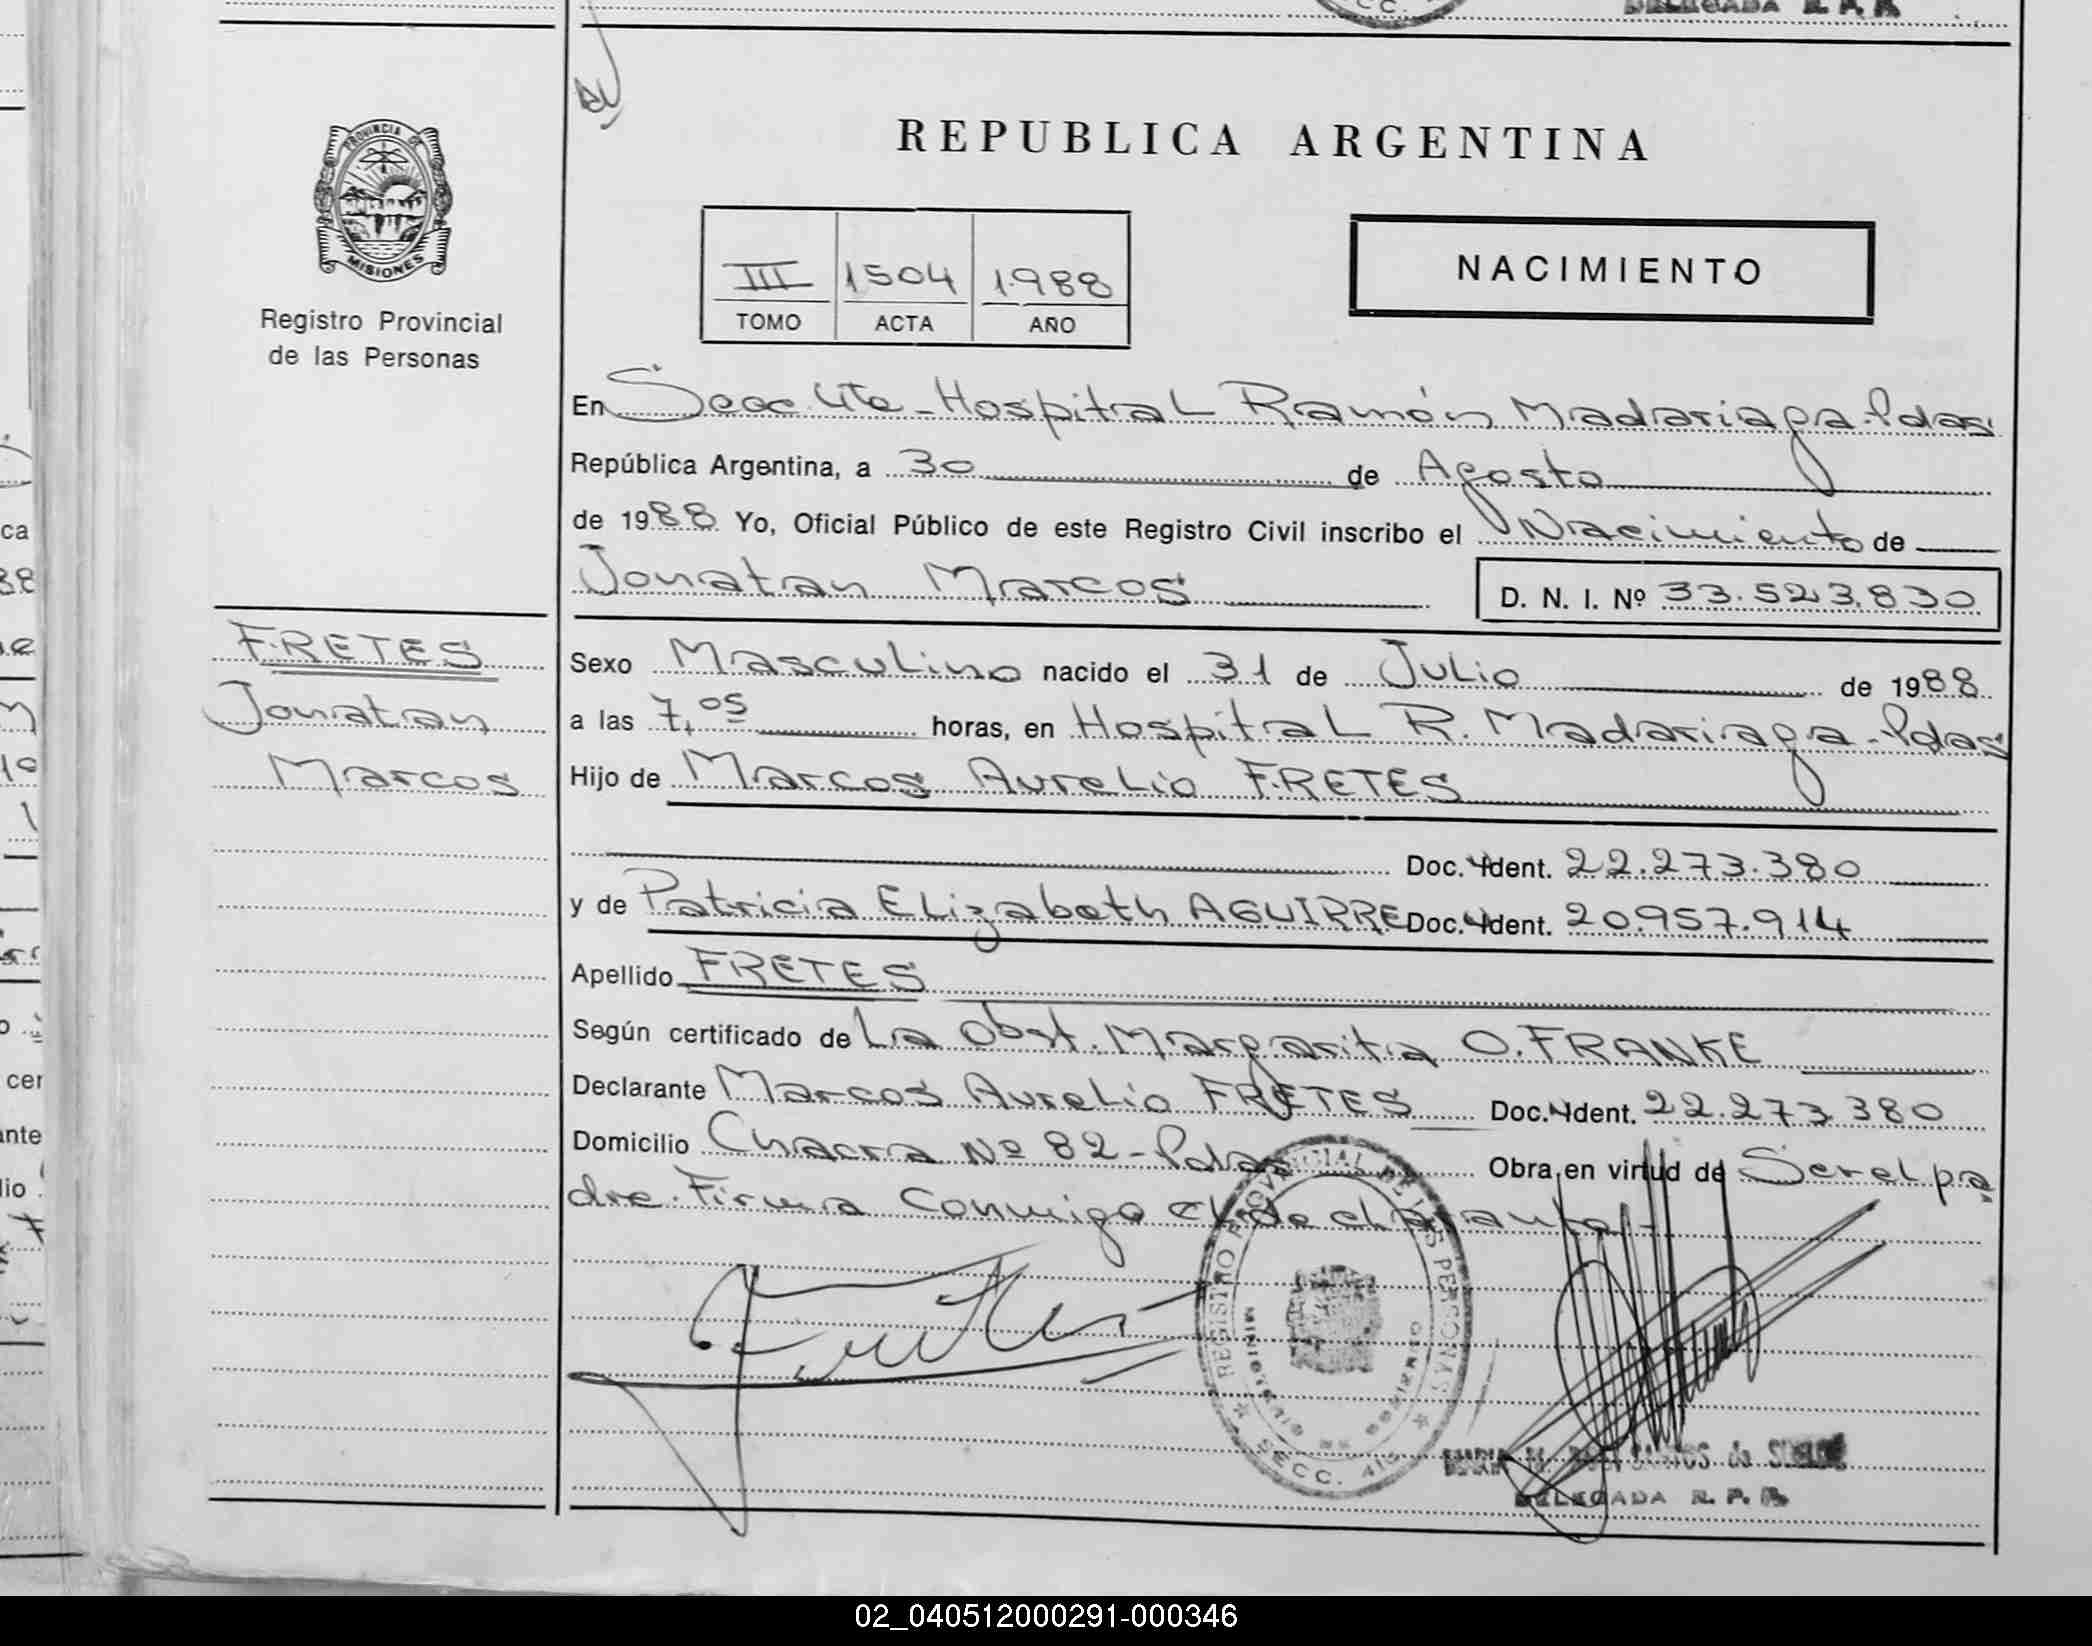 DELEGADA R. P. P.
REPUBLICA ARGENTINA
PROVINCIA DE
MISIONES
Registro Provincial
de las Personas
III 1504 1.988
TOMO ACTA AÑO
NACIMIENTO
En Secc 4ta - Hospital Ramón Madariaga - Pdas
República Argentina, a 30 de Agosto
de 1988 Yo, Oficial Público de este Registro Civil inscribo el Nacimiento de
Jonatan Marcos
D. N. I. Nº 33.523.830
FRETES
Jonatan
Marcos
Sexo Masculino nacido el 31 de Julio de 1988
a las 7,05 horas, en Hospital R. Madariaga - Pdas
Hijo de Marcos Aurelio FRETES
Doc. Ident. 22.273.380
y de Patricia Elizabeth AGUIRRE Doc. Ident. 20.957.914
Apellido FRETES
Según certificado de La Obst. Margarita O. FRANKE
Declarante Marcos Aurelio FRETES Doc. Ident. 22.273.380
Domicilio Chacra Nº 82 - Pdas Obra en virtud de Ser el pa
dre. Firma Conmigo el de clarante -
REGISTRO PROVINCIAL DE LAS PERSONAS
MINISTERIO DE GOBIERNO
SECC.
DELEGADA R. P. P.
02_040512000291-000346